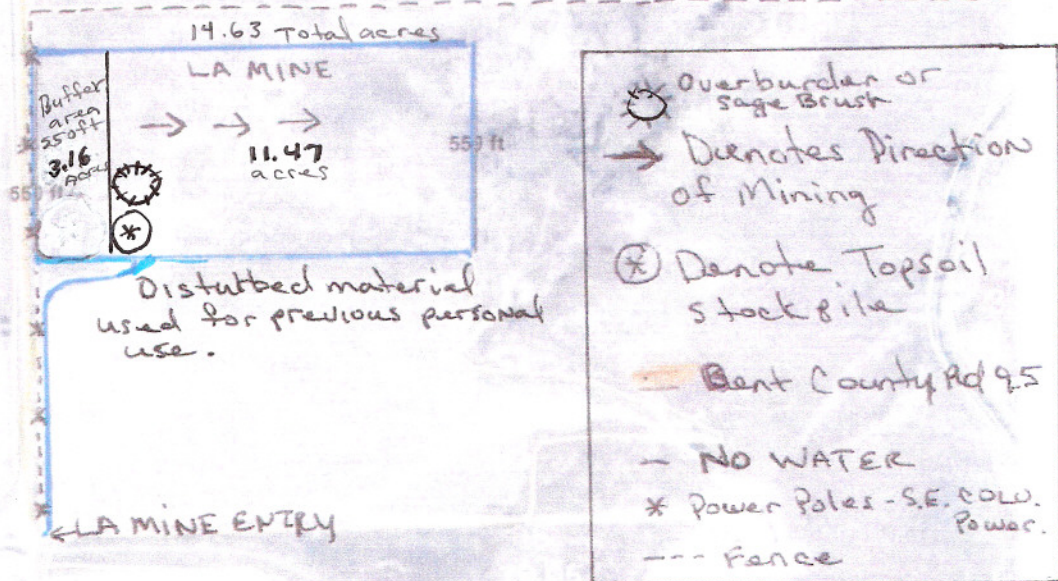 14.63 Total acres
LA MINE
Buffer
area
550ft
3.16
Acres
11.47
acres
550 ft
550 ft
Distutbed material
used for previous personal
use.
LA MINE ENTRY
Overburden or
sage Brush
Denotes Direction
of Mining
Denote Topsoil
stockpile
Bent County Rd 9.5
NO WATER
Power Poles - S.E. COLO.
Power.
Fence